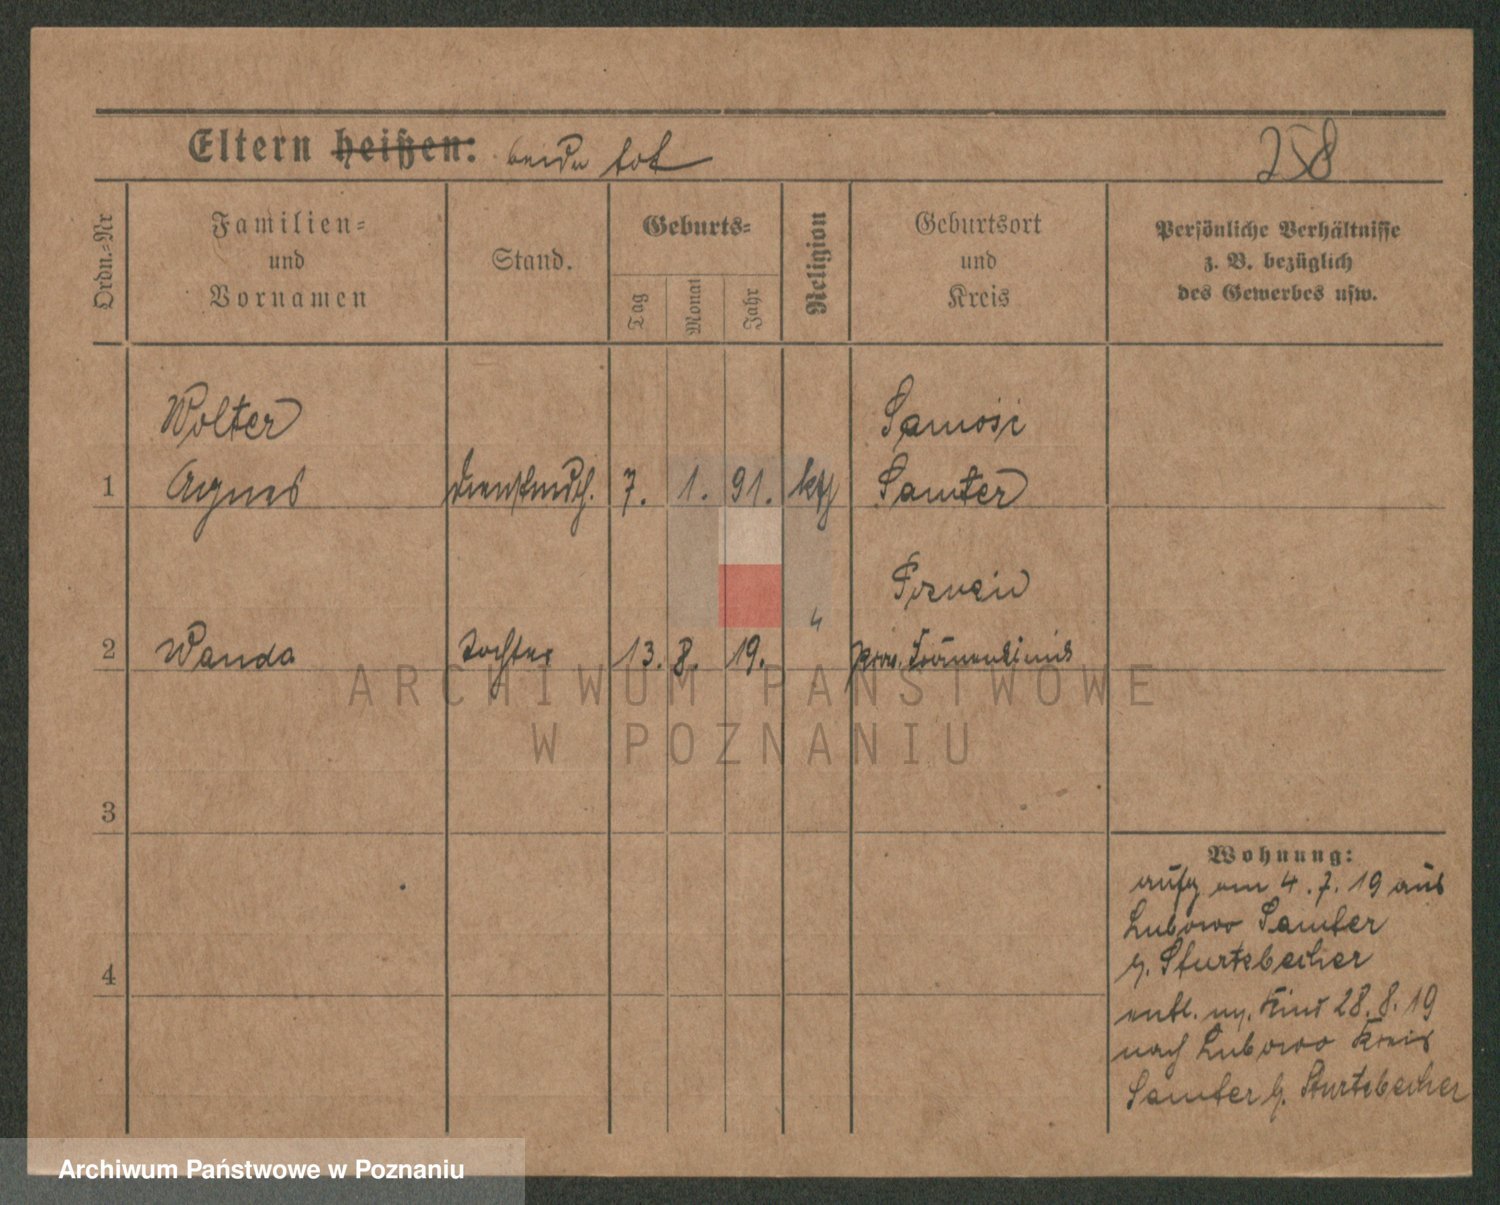 Eltern heißen: beide tot
258
Ordn.-Nr
Familien-
und
Vornamen
Stand.
Geburts-
Tag
Monat
Jahr
Religion
Geburtsort
und
Kreis
Persönliche Verhältnisse
z. B. bezüglich
des Gewerbes usw.
Wolter
Samość
1 Agnes 7. 1. 91. kth Samter
2 Wanda Tochter 13. 8. 19. "
prov. Frauenklinik
3
4
Wohnung:
aufg am 4. 7. 19 aus
Lubowo Samter
b. Sturtzbecher
entl. m. Kind 28. 8. 19
nach Lubowo Kreis
Samter b. Sturtzbecher
ARCHIWUM PAŃSTWOWE
W POZNANIU
Archiwum Państwowe w Poznaniu